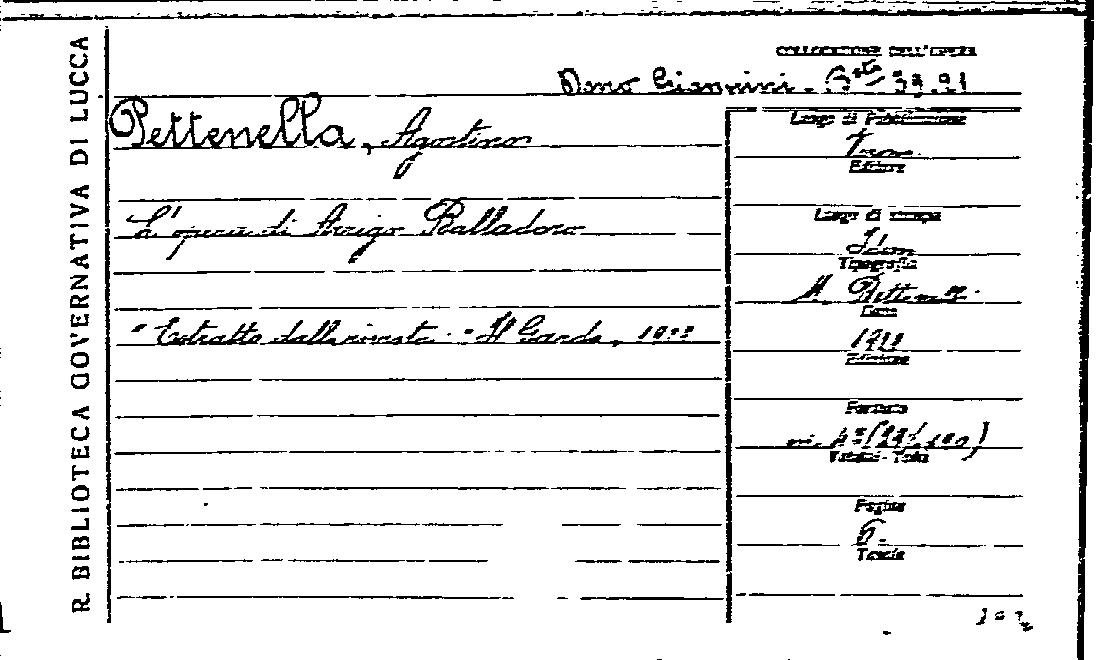 R. BIBLIOTECA GOVERNATIVA DI LUCCA
COLLOCAZIONE DELL'OPERA
Dono Giannini - Bsta 39.21
Pettenella, Agostino
L'opera di Arrigo Balladoro
"Estratto dalla rivista: "Il Garda,
Luogo di Pubblicazione
Editore
Luogo di stampa
Idem
Tipografia
Anno
Edizione
Formato
in 4°
Volumi - Tomi
Pagine
6.
Tavole